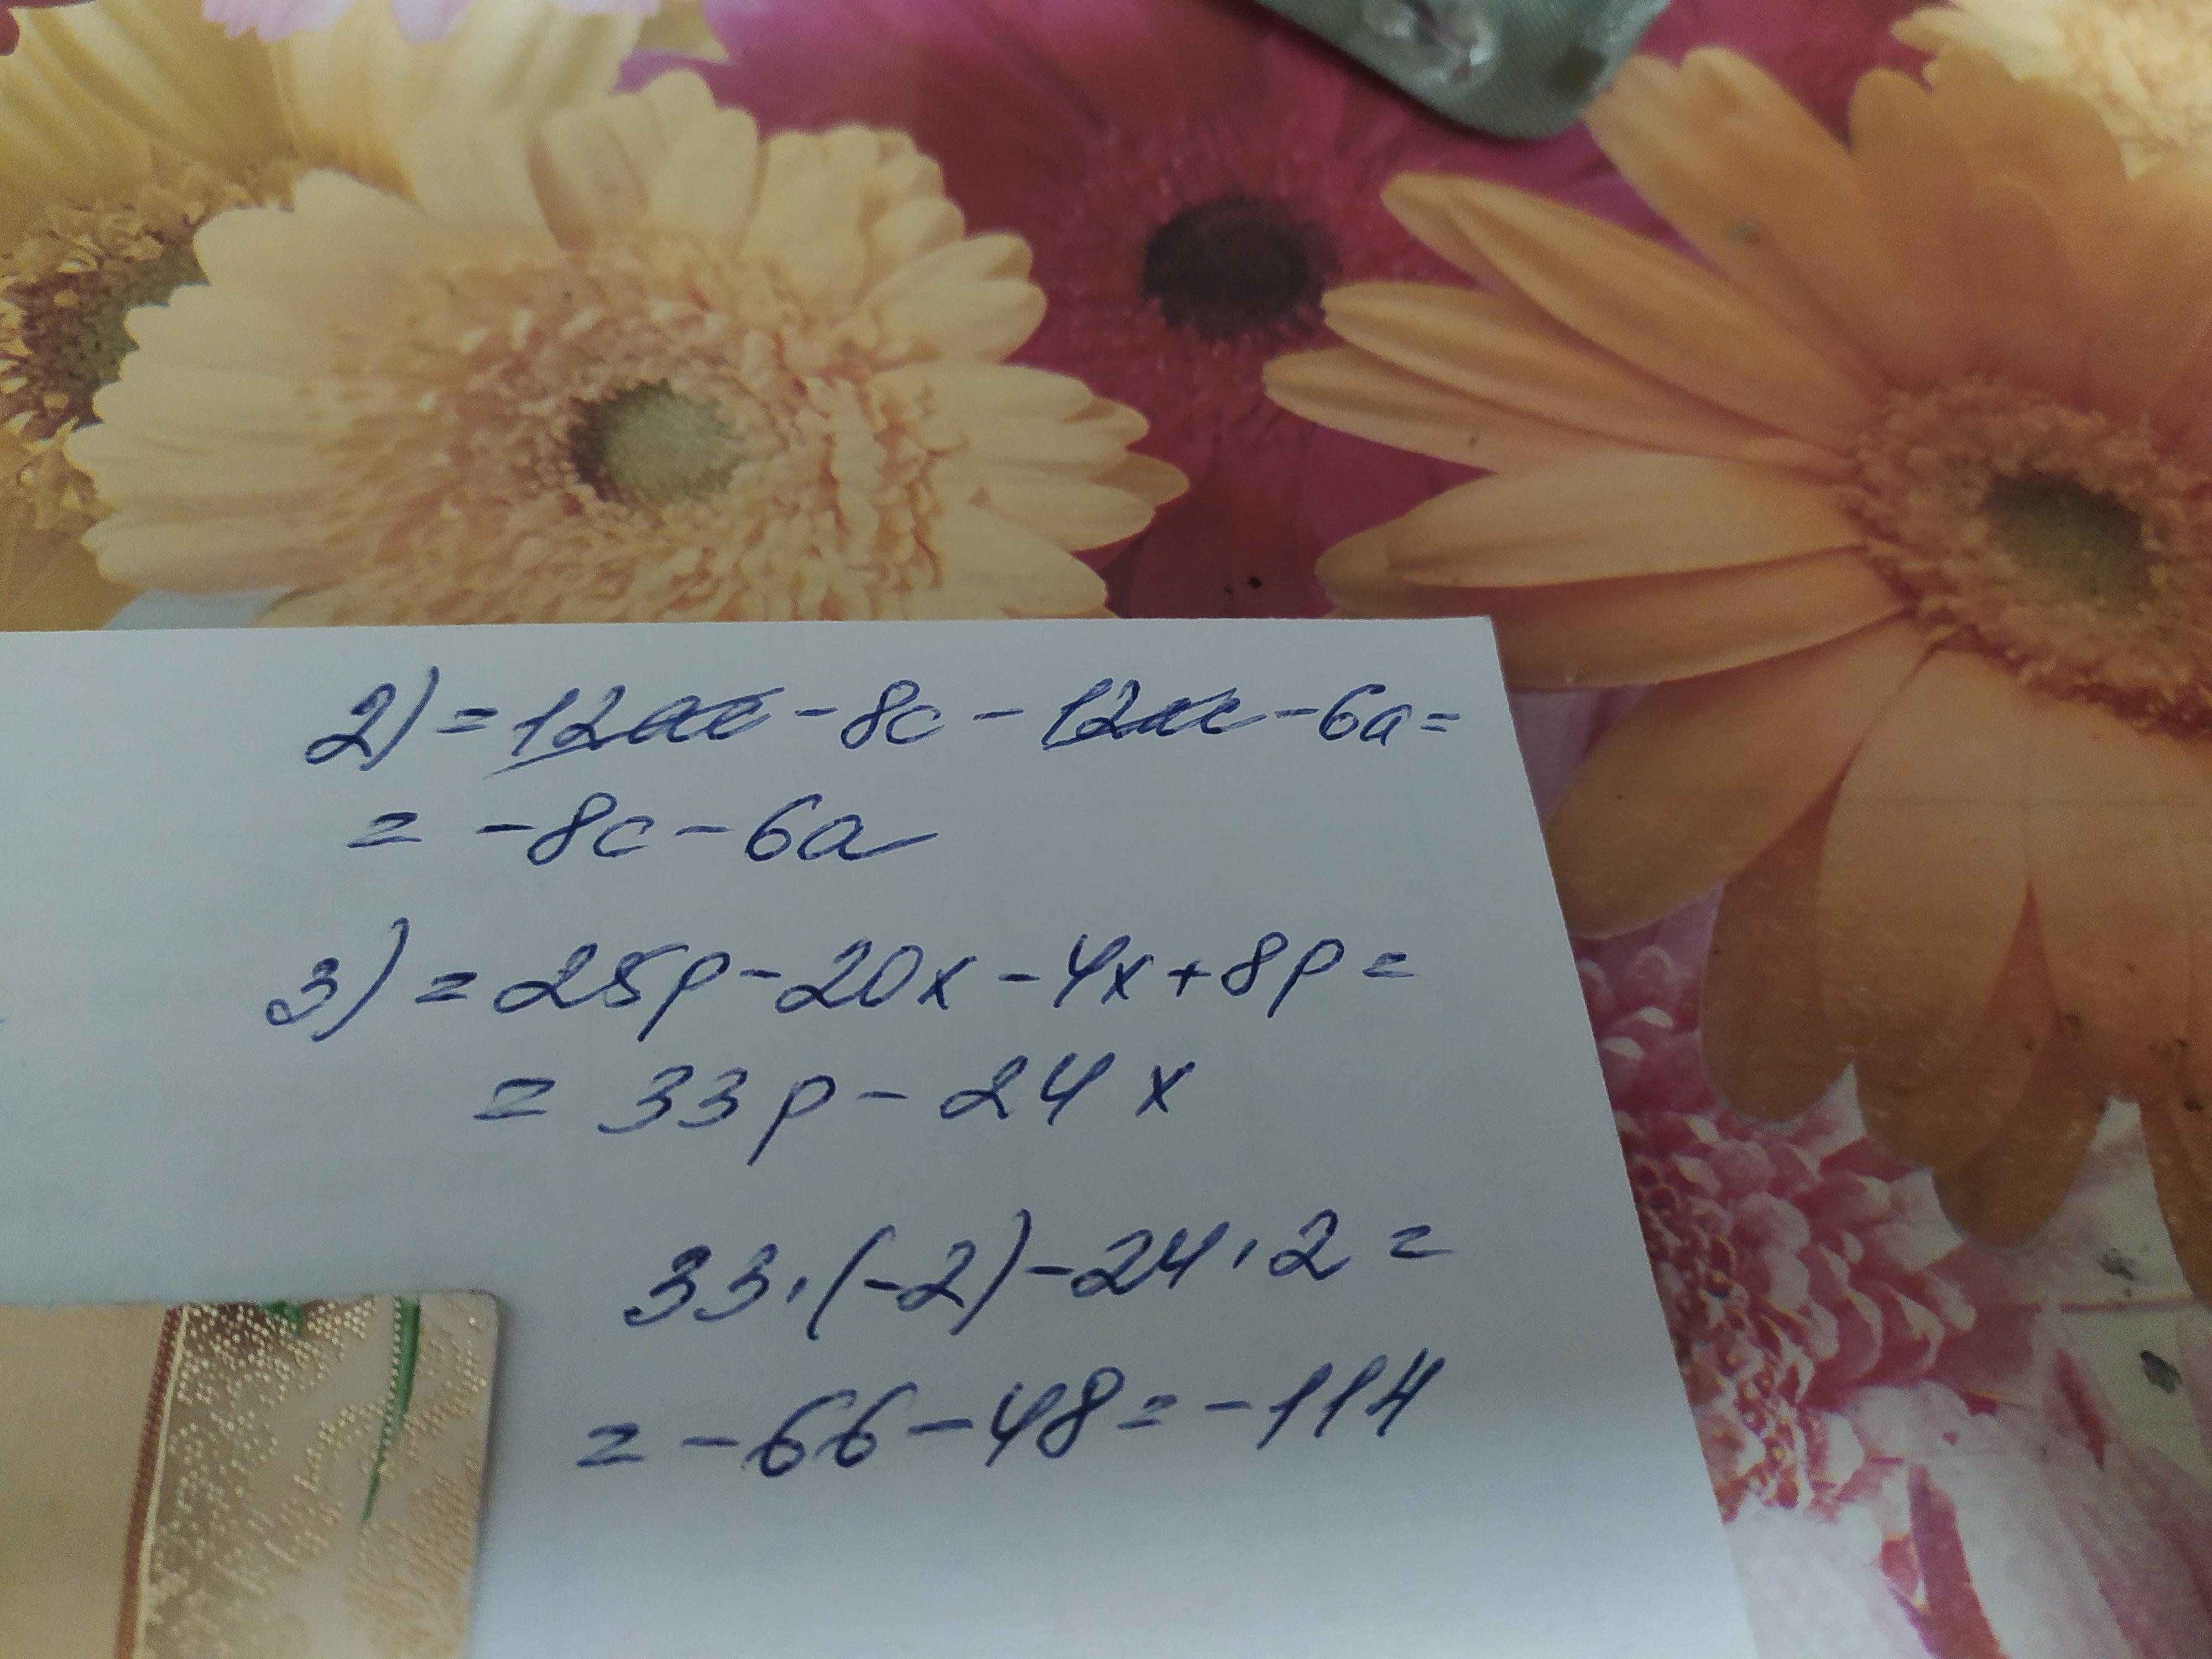 2) = 12ac - 8c - 12ac - 6a =
= - 8c - 6a
3) = 25p - 20x - 4x + 8p =
= 33p - 24x
33·(-2) - 24·2 =
= - 66 - 48 = - 114